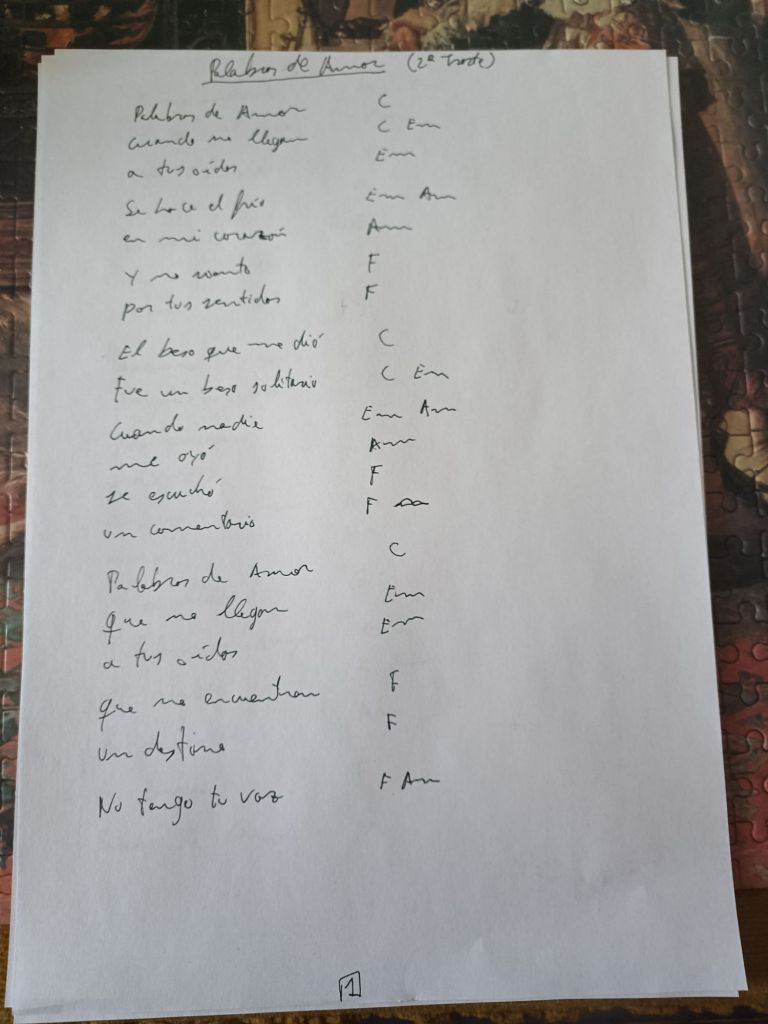 Palabras de Amor (2ª Traste)
Palabras de Amor C
Cuando no llegan C Em
a tus oidos Em
Se hace el frio Em Am
en mi corazón Am
Y no siento F
por tus sentidos F
El beso que me dió C
Fue un beso solitario C Em
Cuando nadie Em Am
me oyó Am
se escuchó F
un comentario F
Palabras de Amor C
que no llegan Em
a tus oidos Em
que no encuentran F
un destino F
No tengo tu voz F Am
1